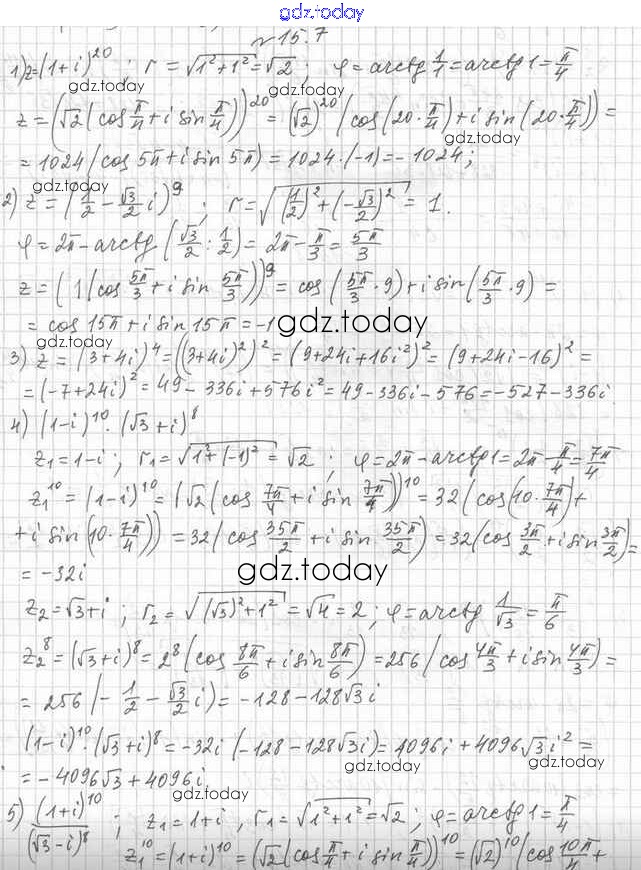 gdz.today
№15.7
1) z=(1+i)^20; r=√(1²+1²)=√2; φ=arctg 1/1=arctg1=π/4
gdz.today gdz.today
z=(√2(cos π/4+i sin π/4))^20=(√2)^20(cos(20·π/4)+i sin(20·π/4))=
=1024(cos 5π+i sin 5π)=1024·(-1)=-1024;
gdz.today
2) z=(1/2-√3/2 i)^9; r=√((1/2)²+(-√3/2)²)=1.
φ=2π-arctg(√3/2:1/2)=2π-π/3=5π/3
z=(1(cos 5π/3+i sin 5π/3))^9=cos(5π/3·9)+i sin(5π/3·9)=
=cos 15π+i sin 15π=-1
gdz.today
3) z=(3+4i)^4=((3+4i)²)²=(9+24i+16i²)²=(9+24i-16)²=
=(-7+24i)²=49-336i+576i²=49-336i-576=-527-336i
4) (1-i)^10·(√3+i)^8
z₁=1-i; r₁=√(1²+(-1)²)=√2; φ=2π-arctg1=2π-π/4=7π/4
z₁^10=(1-i)^10=(√2(cos 7π/4+i sin 7π/4))^10=32(cos(10·7π/4)+
+i sin(10·7π/4))=32(cos 35π/2+i sin 35π/2)=32(cos 3π/2+i sin 3π/2)=
=-32i
gdz.today
z₂=√3+i; r₂=√((√3)²+1²)=√4=2; φ=arctg 1/√3=π/6
z₂^8=(√3+i)^8=2^8(cos 8π/6+i sin 8π/6)=256(cos 4π/3+i sin 4π/3)=
=256(-1/2-√3/2 i)=-128-128√3i
(1-i)^10·(√3+i)^8=-32i(-128-128√3i)=4096i+4096√3i²=
gdz.today
=-4096√3+4096i
gdz.today
5) (1+i)^10/(√3-i)^8; z₁=1+i, r₁=√(1²+1²)=√2; φ=arctg1=π/4
z₁^10=(1+i)^10=(√2(cos π/4+i sin π/4))^10=(√2)^10(cos 10π/4+